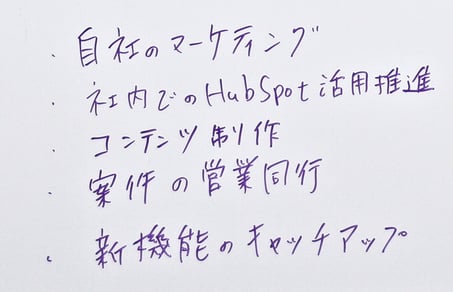 ・自社のマーケティング
・社内でのHubSpot活用推進
・コンテンツ制作
・案件の営業同行
・新機能のキャッチアップ